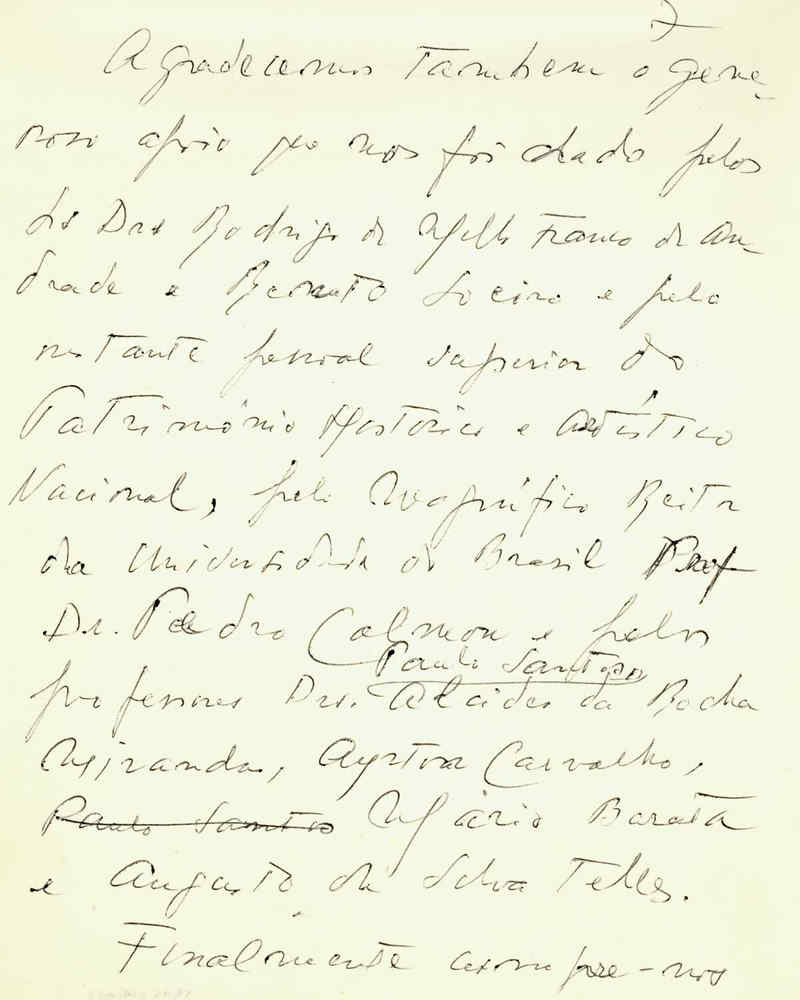 7
Agradecemos tambem o gene-
roso apoio que nos foi dado pelos
Srs Drs Rodrigo de Mello Franco de An-
drade e Renato Soeiro e pelo
restante pessoal superior do
Património Histórico e Artístico
Nacional, pelo Magnífico Reitor
da Universidade do Brasil Prof
Dr. Pedro Calmon e pelos
Paulo Santos,
professores Drs. Alcides da Rocha
Miranda, Ayrton Carvalho,
Paulo Santos Mário Barata
e Augusto da Silva Telles.
Finalmente cumpre-nos